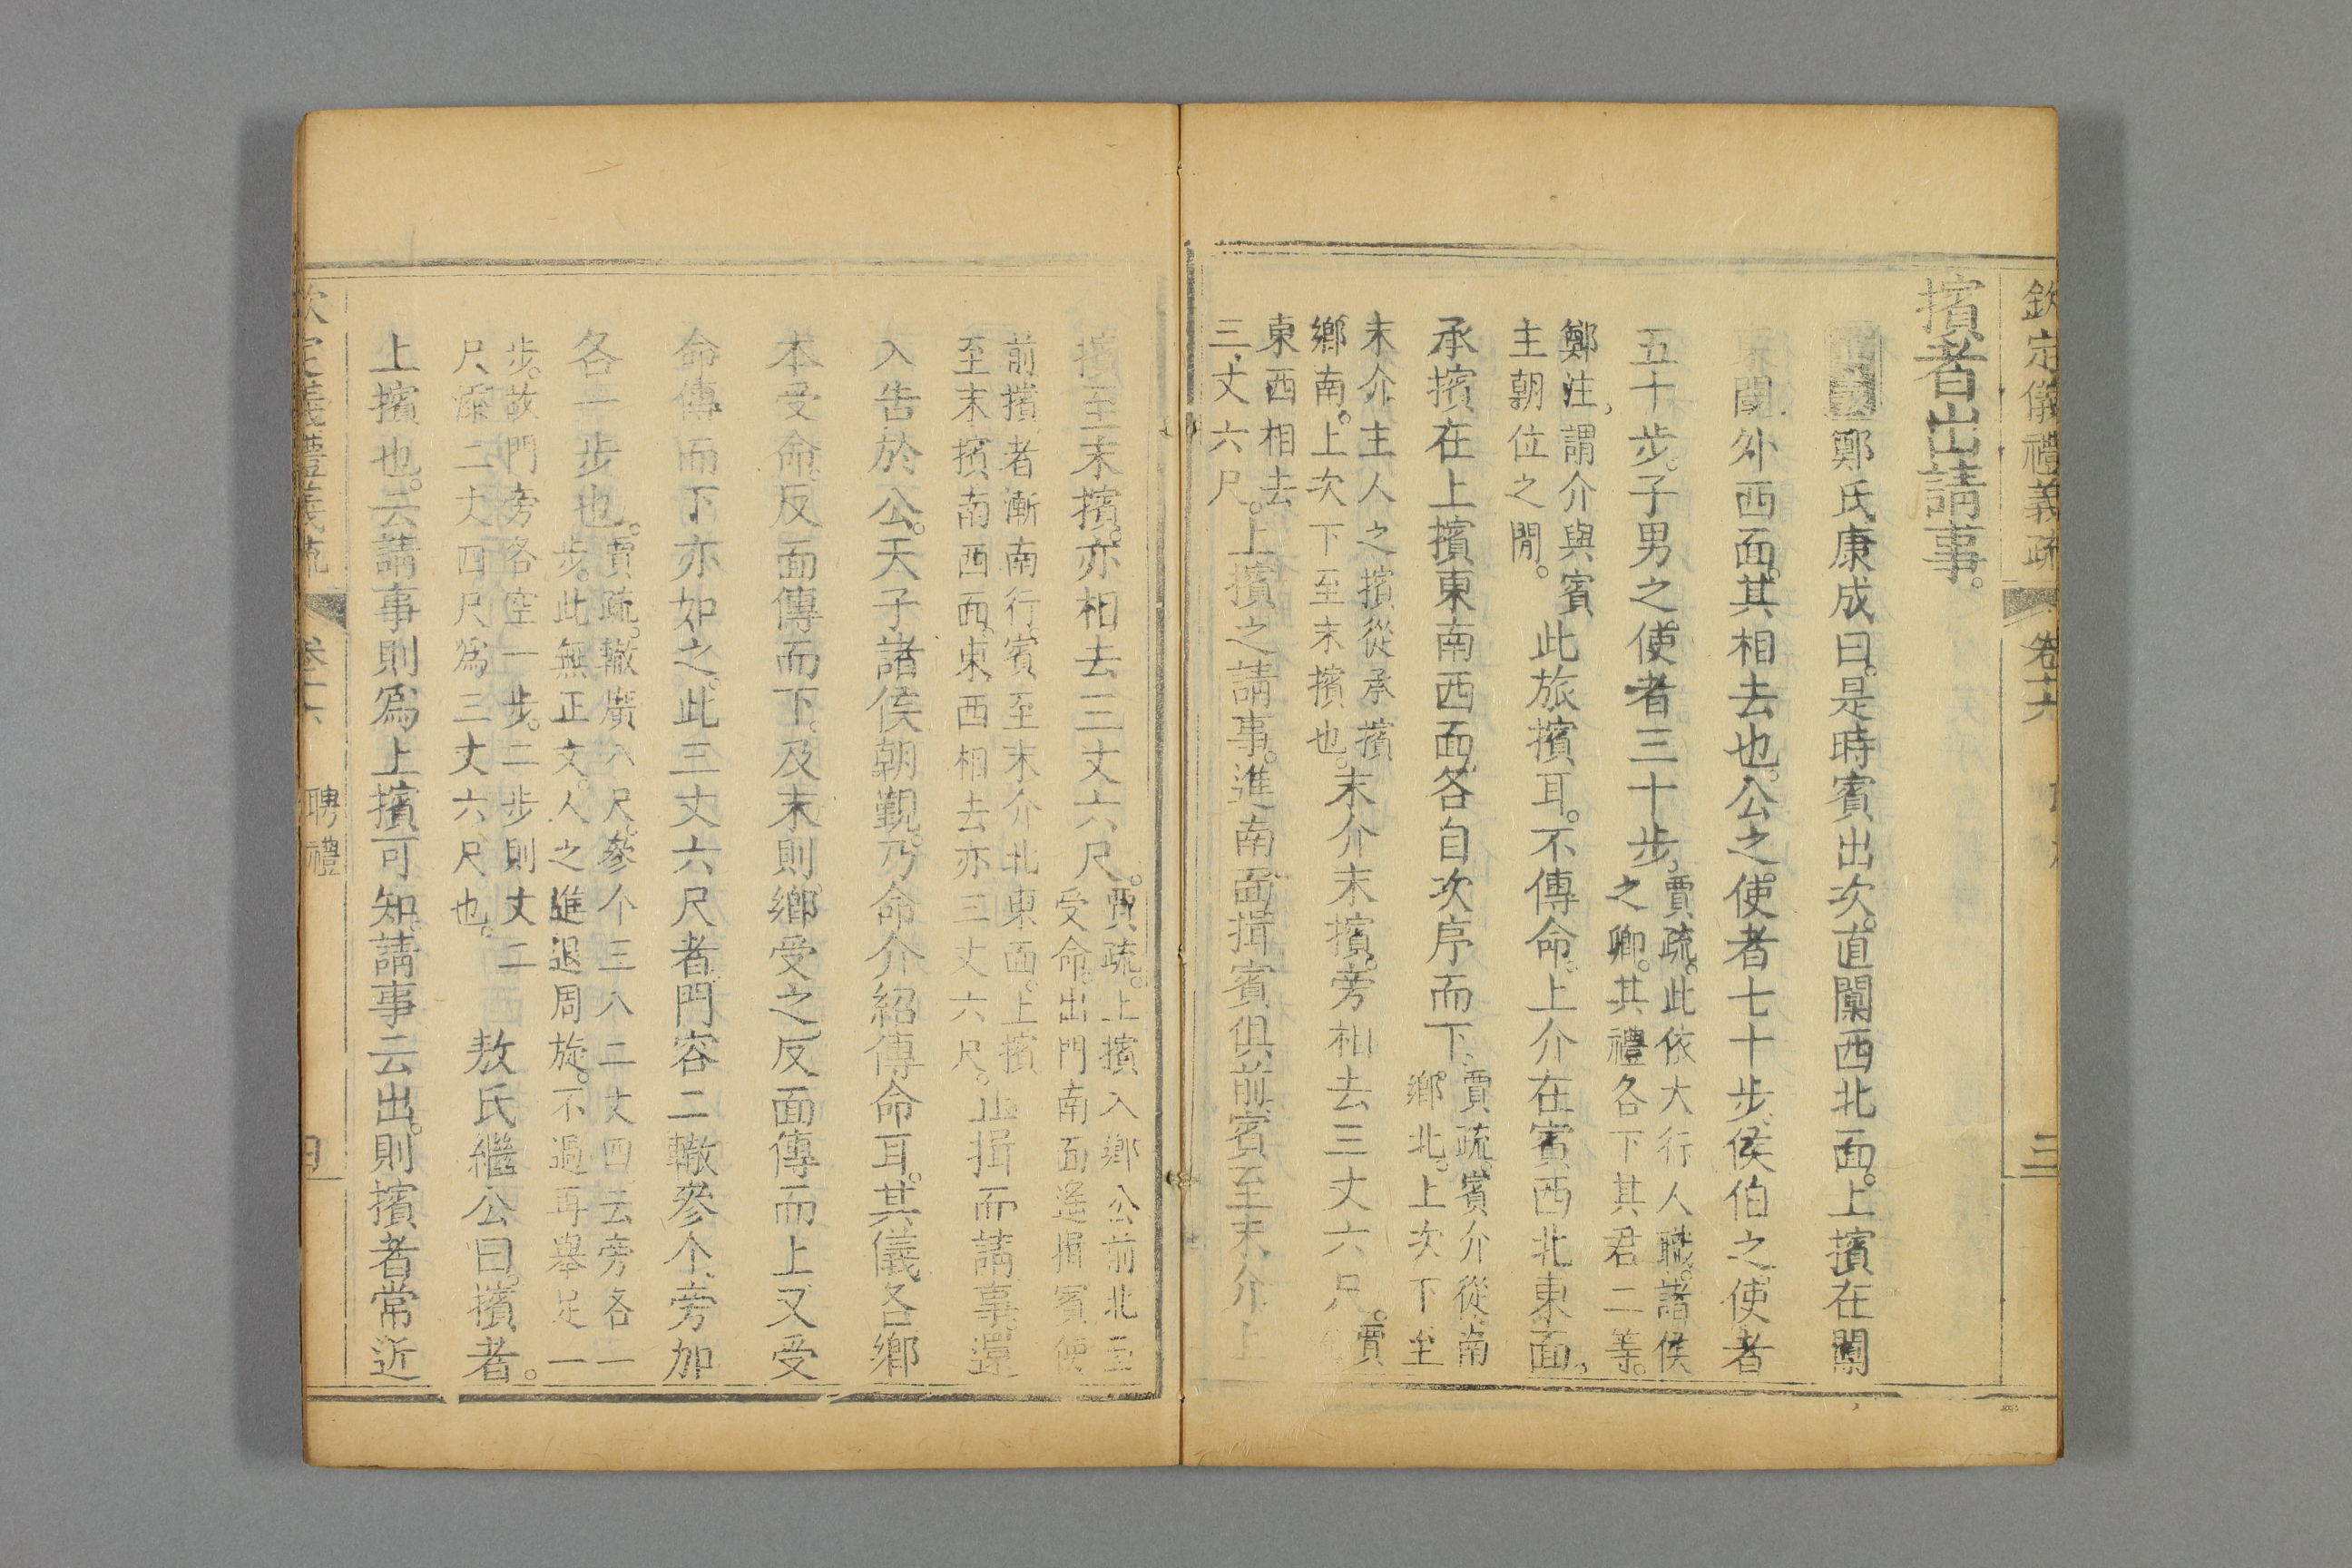 欽定儀禮義疏 卷十六 三
擯者出請事。
正義鄭氏康成曰。是時賓出次。直闑西北面。上擯在闑
東閾外西面。其相去也。公之使者七十步。侯伯之使者
五十步。子男之使者三十步。賈疏。此依大行人職。諸侯
之卿。其禮各下其君二等。
鄭注。謂介與賓
主朝位之閒。此旅擯耳。不傳命。上介在賓西北東面。
承擯在上擯東南西面。各自次序而下。賈疏。賓介從南
鄉北。上次下至
末介。主人之擯從承擯
鄉南。上次下至末擯也。末介末擯。旁相去三丈六尺。賈
東西相去
三丈六尺。上擯之請事。進南面揖賓俱前。賓至末介。上
擯至末擯。亦相去三丈六尺。賈疏。上擯入鄉公前北至
受命。出門南面遙揖賓使
前擯者漸南行。賓至末介北東面。上擯
至末擯南西面。東西相去亦三丈六尺。止揖而請事。還
入告於公。天子諸侯朝覲。乃命介紹傳命耳。其儀各鄉
本受命。反面傳而下。及末則鄉受之。反面傳而上。又受
命傳而下亦如之。此三丈六尺者。門容二轍參个。旁加
各一步也。賈疏。轍廣八尺。參个三八二丈四。云旁各一
步。此無正文。人之進退周旋。不過再舉足一
步。故門旁各空一步。二步則丈二
尺。添二丈四尺爲三丈六尺也。敖氏繼公曰。擯者。
上擯也。云請事則爲上擯可知。請事云出。則擯者常近
欽定義禮義疏 卷十六 聘禮 四